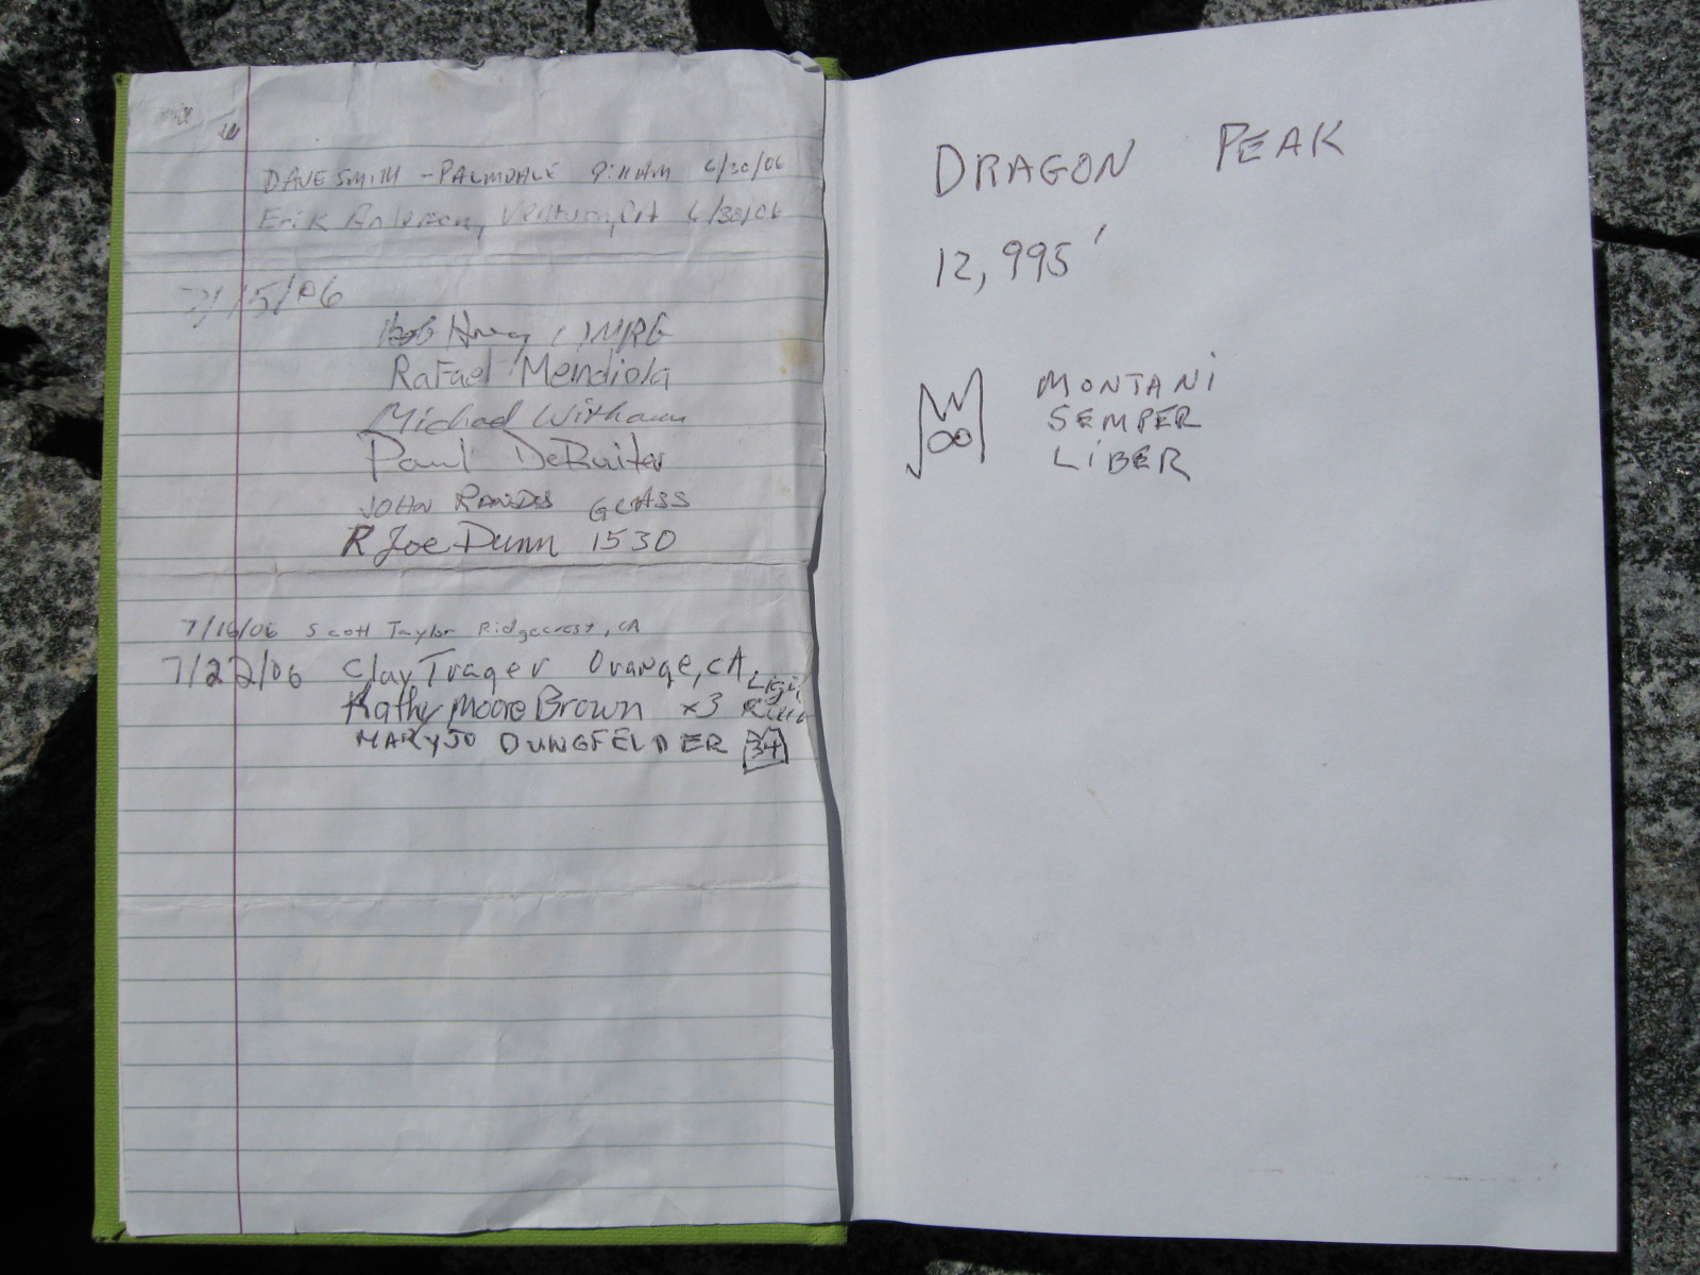 DAVE SMITH - PALMDALE 9:11 AM 6/30/06
Erik Anderson, Ventura, CA 6/30/06
7/15/06
Bob
Rafael Mendiola
Michael Witham
Paul DeRuiter
JOHN GLASS
R Joe Dunn 1530
7/16/06 Scott Taylor Ridgecrest, CA
7/22/06 Clay Trager Orange, CA.
Kathy Moore Brown x3
MARY JO DUNGFELDER 34
DRAGON PEAK
12,995'
MONTANI
SEMPER
LIBER